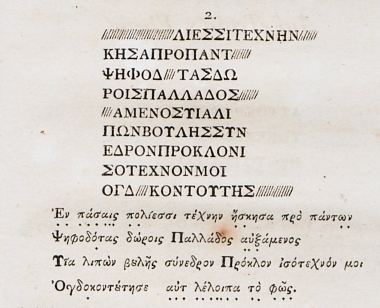 2.
////////////ΛΙΕΣΣΙΤΕΧΝΗΝ/////
ΚΗΣΑΠΡΟΠΑΝΤ////
ΨΗΦΟΔ////ΤΑΣΔΩ
ΡΟΙΣΠΑΛΛΑΔΟΣ////
////ΑΜΕΝΟΣΥΙΑΛΙ
ΠΩΝΒΟΥΛΗΣΣΥΝ
ΕΔΡΟΝΠΡΟΚΛΟΝΙ
ΣΟΤΕΧΝΟΝΜΟΙ
ΟΓΔ////ΚΟΝΤΟΥΤΗΣ/////////
Ἐν πάσαις πολίεσσι τέχνην ἤσκησα πρὸ πάντων
Ψηφοδότας δώροις Παλλάδος αὐξάμενος
Υἷα λιπὼν βουλῆς σύνεδρον Πρόκλον ἰσότεχνόν μοι
Ὀγδοκοντούτησε αὐτ λέλοιπα τὸ φῶς.